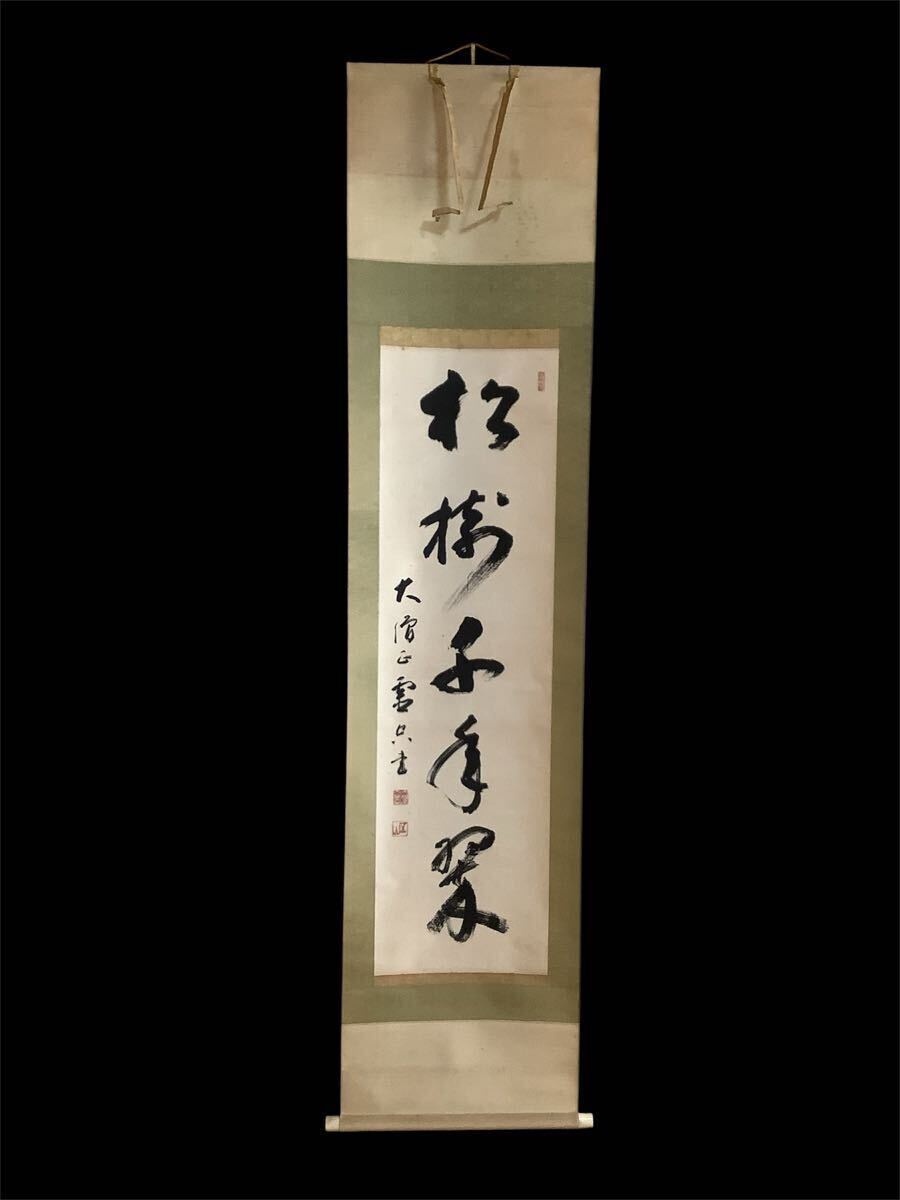 松樹千年翠
大僧正雲共書